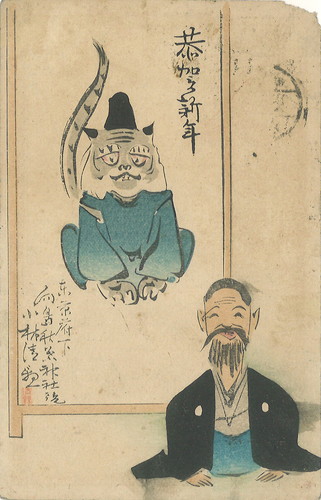 恭賀新年
東京府下
向島秋葉神社
小林清親